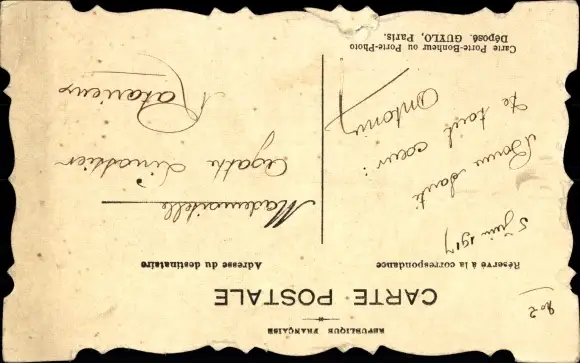 RÉPUBLIQUE FRANÇAISE
CARTE POSTALE
Réservé à la correspondance
Adresse du destinataire
No 2
5 juin 1917
Bonne Santé
le tout cœur :
Antony
Mademoiselle
Agathe
Carte Porte-Bonheur ou Porte-Photo
Déposé. GUYLO, Paris.